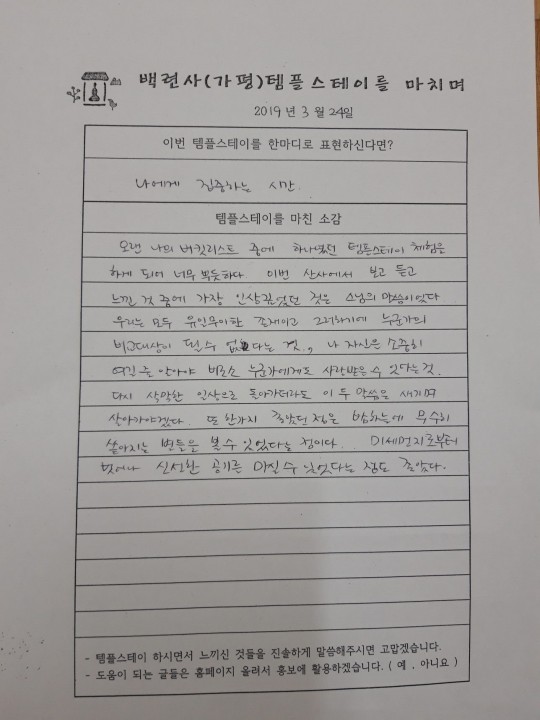 백련사(가평)템플스테이를 마치며
2019 년 3 월 24일
이번 템플스테이를 한마디로 표현하신다면?
나에게 집중하는 시간.
템플스테이를 마친 소감
오랜 나의 버킷리스트 중에 하나였던 템플스테이 체험을
하게 되어 너무 뿌듯하다. 이번 산사에서 보고 듣고
느낀 것 중에 가장 인상깊었던 것은 스님의 말씀이었다
우리는 모두 유일무이한 존재이고 그러하기에 누군가의
비교대상이 될 수 없다는 것, 나 자신을 소중히
여길 줄 알아야 비로소 누군가에게도 사랑받을 수 있다는 것.
다시 삭막한 일상으로 돌아가더라도 이 두 말씀을 새기며
살아가야겠다. 또 한가지 좋았던 점은 밤하늘에 무수히
쏟아지는 별들을 볼 수 있었다는 점이다. 미세먼지로부터
벗어나 신선한 공기를 마실 수 있었다는 점도 좋았다.
- 템플스테이 하시면서 느끼신 것들을 진솔하게 말씀해주시면 고맙겠습니다.
- 도움이 되는 글들은 홈페이지 올려서 홍보에 활용하겠습니다. ( 예 , 아니요 )